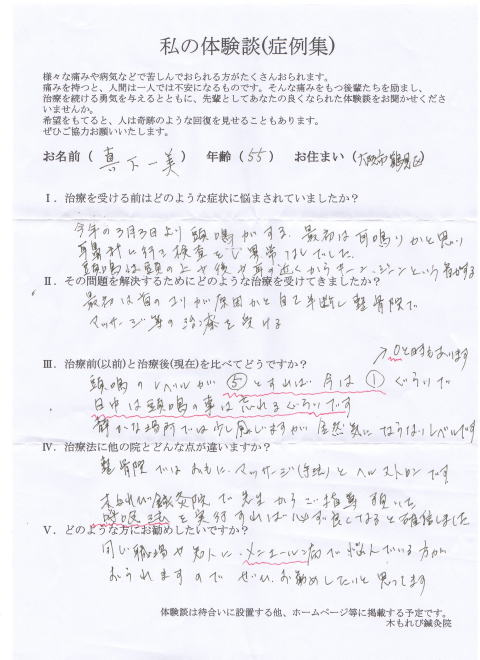 私の体験談(症例集)
様々な痛みや病気などで苦しんでおられる方がたくさんおられます。
痛みを持つと、人間は一人では不安になるものです。そんな痛みをもつ後輩たちを励まし、
治療を続ける勇気を与えるとともに、先輩としてあなたの良くなられた体験談をお聞かせくださ
いませんか。
希望をもてると、人は奇跡のような回復を見せることもあります。
ぜひご協力お願いいたします。
お名前（ 真下一美 ） 年齢（ 55 ） お住まい（大阪市鶴見区）
Ⅰ．治療を受ける前はどのような症状に悩まされていましたか？
今年の3月3日より頭鳴がする。最初は耳鳴りかと思い
耳鼻科に行き検査をし異常なしでした。
頭鳴は頭の上や後や耳の近くからキーン、ジンという音がする
Ⅱ．その問題を解決するためにどのような治療を受けてきましたか？
最初は首のコリが原因かと自己判断し整骨院で
マッサージ等の治療を受ける
Ⅲ．治療前(以前)と治療後(現在)を比べてどうですか？
↗0と時もあります
頭鳴のレベルが ⑤ とすれば今は ① ぐらいで
日中は頭鳴の事は忘れるぐらいです
静かな場所では少し感じますが全然気にならないレベルです
Ⅳ．治療法に他の院とどんな点が違いますか？
整骨院ではおもにマッサージ(手技)とヘルストロンです
木もれび鍼灸院で先生からご指導頂いた
呼吸法を実行すれば必ず良くなると確信しました
Ⅴ．どのような方にお勧めしたいですか？
同じ職場や知人に、メニエール病で悩んでいる方が
おられますのでぜひお勧めしたいと思ってます
体験談は待合いに設置する他、ホームページ等に掲載する予定です。
木もれび鍼灸院